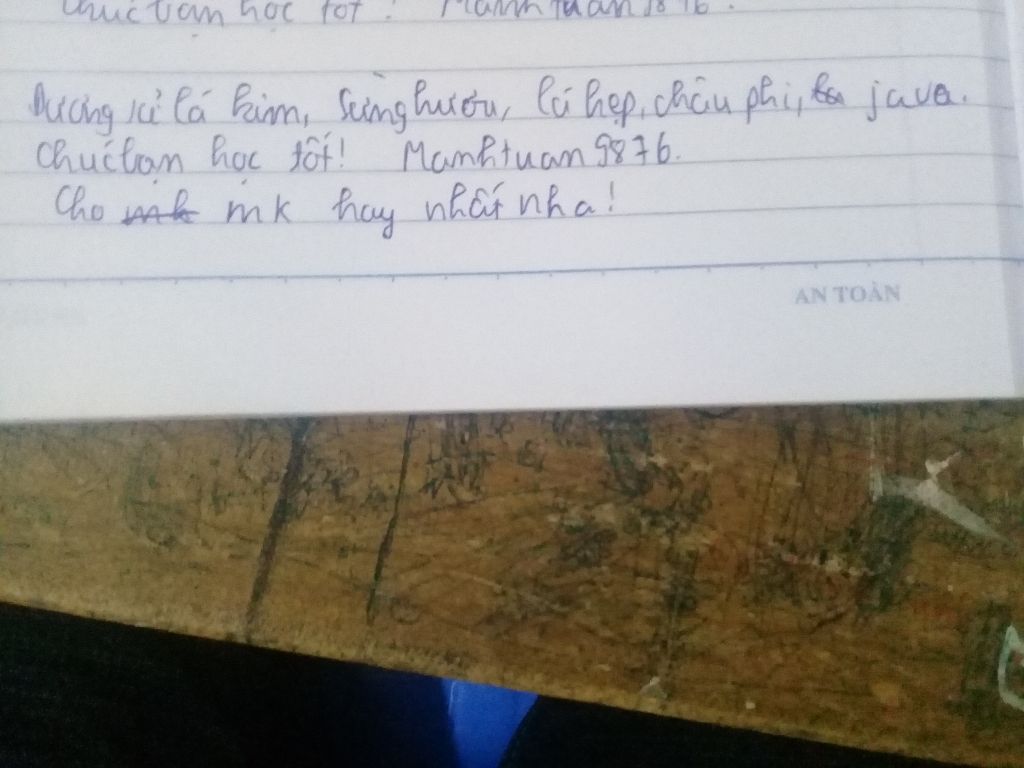 chúc bạn học tốt! Manhtuan9876.
Dương xỉ lá kim, Sừng hươu, lá hẹp, châu phi, java.
Chúc bạn học tốt! Manhtuan9876.
Cho mk mk hay nhất nha!
AN TOÀN